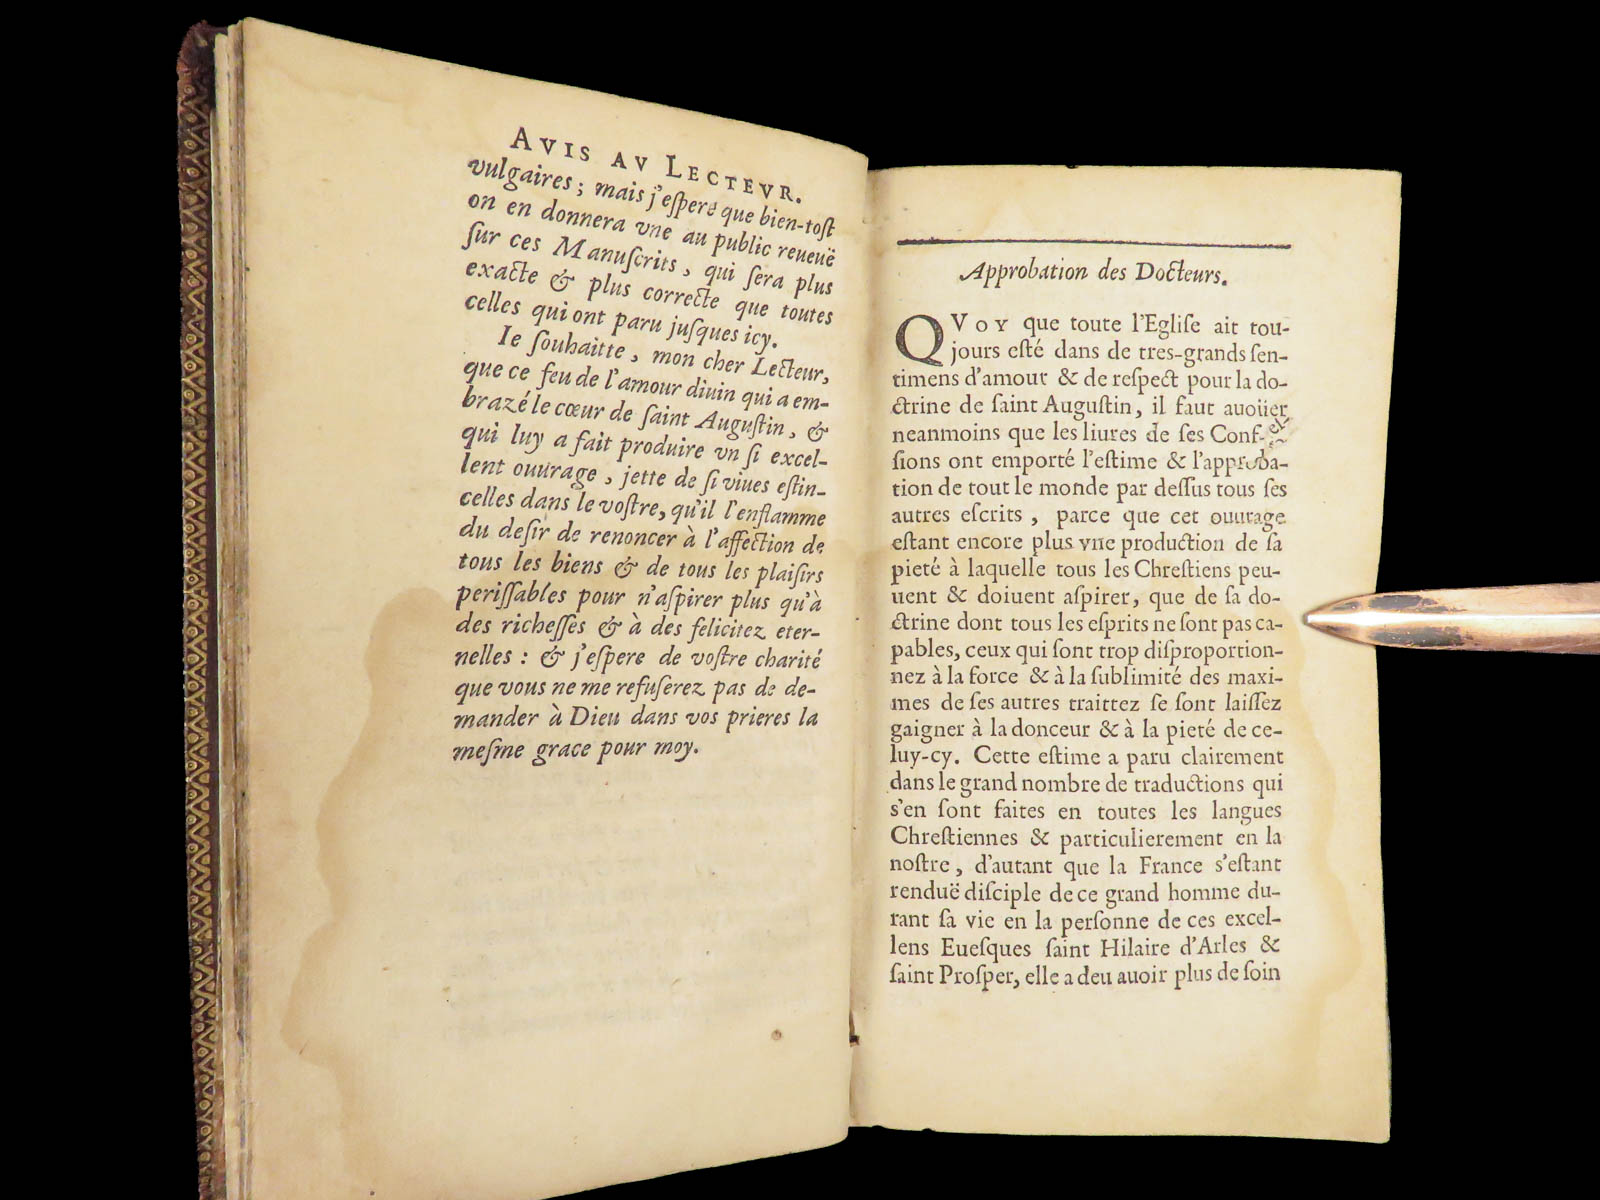 AVIS AV LECTEVR.
vulgaires ; mais j'eſpere que bien-toſt
on en donnera vne au public reueuë
ſur ces Manuſcrits, qui ſera plus
exacte & plus correcte que toutes
celles qui ont paru juſques icy.
Ie ſouhaitte, mon cher Lecteur,
que ce feu de l'amour diuin qui a em-
brazé le cœur de ſaint Auguſtin, &
qui luy a fait produire vn ſi excel-
lent ouurage, jette de ſi viues eſtin-
celles dans le voſtre, qu'il l'enflamme
du deſir de renoncer à l'affection de
tous les biens & de tous les plaiſirs
periſſables pour n'aſpirer plus qu'à
des richeſſes & à des felicitez eter-
nelles : & j'eſpere de voſtre charité
que vous ne me refuſerez pas de de-
mander à Dieu dans vos prieres la
meſme grace pour moy.
Approbation des Docteurs.
QVOY que toute l'Egliſe ait tou-
jours eſté dans de tres-grands ſen-
timens d'amour & de reſpect pour la do-
ctrine de ſaint Auguſtin, il faut auoüer
neanmoins que les liures de ſes Conf-eſ-
ſions ont emporté l'eſtime & l'approba-
tion de tout le monde par deſſus tous ſes
autres eſcrits, parce que cet ouurage
eſtant encore plus vne production de ſa
pieté à laquelle tous les Chreſtiens peu-
uent & doiuent aſpirer, que de ſa do-
ctrine dont tous les eſprits ne ſont pas ca-
pables, ceux qui ſont trop diſproportion-
nez à la force & à la ſublimité des maxi-
mes de ſes autres traittez ſe ſont laiſſez
gaigner à la donceur & à la pieté de ce-
luy-cy. Cette eſtime a paru clairement
dans le grand nombre de traductions qui
s'en ſont faites en toutes les langues
Chreſtiennes & particulierement en la
noſtre, d'autant que la France s'eſtant
renduë diſciple de ce grand homme du-
rant ſa vie en la perſonne de ces excel-
lens Eueſques ſaint Hilaire d'Arles &
ſaint Proſper, elle a deu auoir plus de ſoin